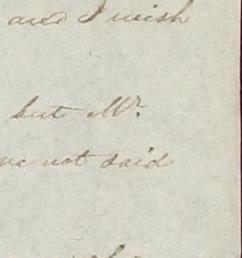 and I wish
but Mr.
not said